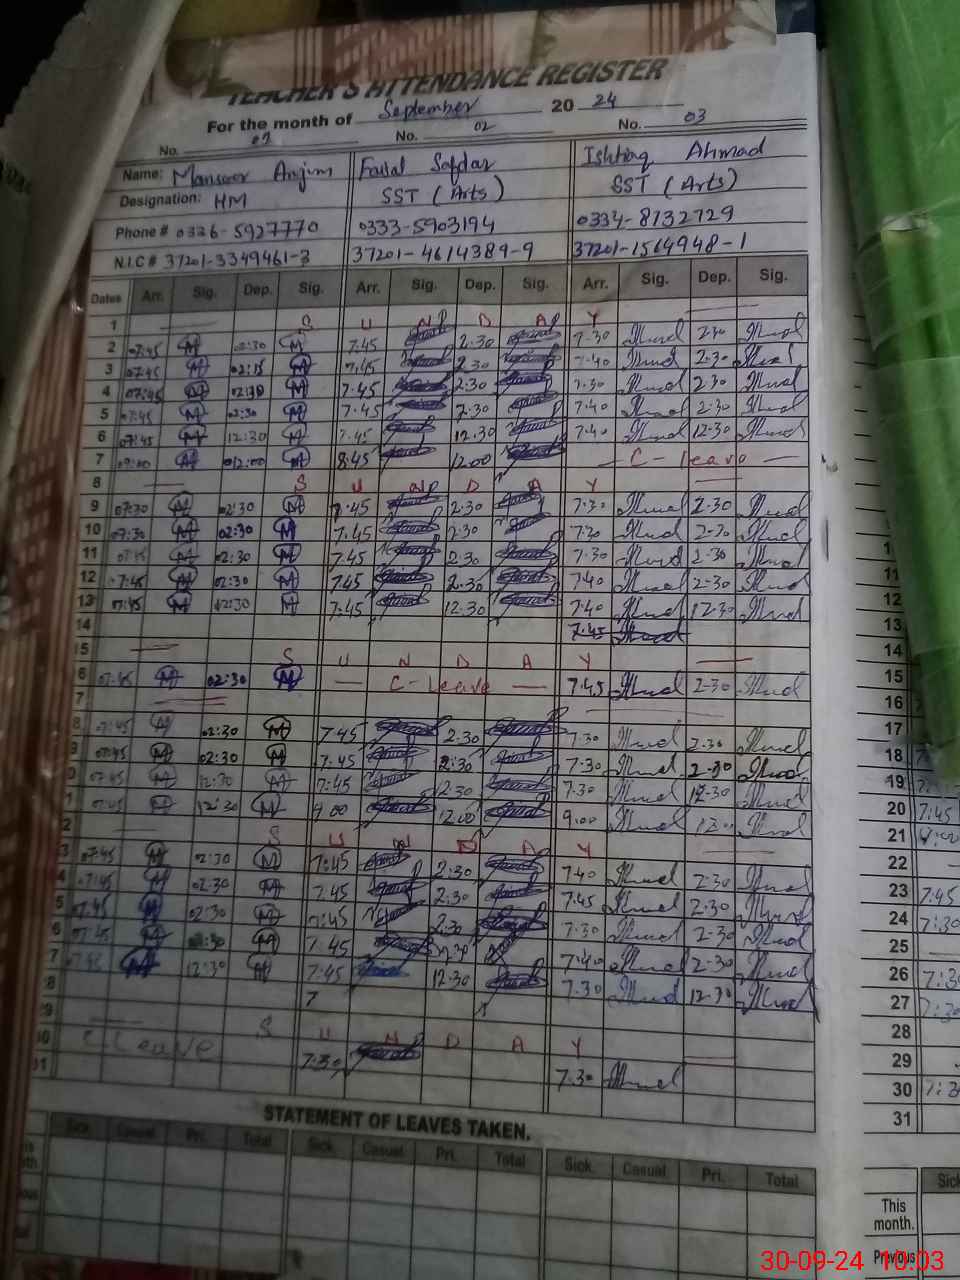 TEACHER'S ATTENDANCE REGISTER
For the month of September 20 24
No. 01 No. 02 No. 03
Name: Mansoor Anjum Faisal Safdar Ishtiaq Ahmad
Designation: HM SST (Arts) SST (Arts)
Phone # 0336-5927770 0333-5903194 0334-8732729
N.I.C # 37201-3349461-3 37201-4614389-9 37201-1564948-1
Dates Arr. Sig. Dep. Sig. Arr. Sig. Dep. Sig. Arr. Sig. Dep. Sig.
1 S U N D A Y
2 07:45 M 02:30 M 7.45 2.30 7-30 2-30
3 07:45 M 02:15 M 7.45 2.30 7-40 2-30
4 07:45 M M 7.45 2:30 7.30 2-30
5 07:45 M 02:30 M 7.45 2.30 7-40 2-30
6 07:45 M 12:30 M 7.45 12.30 7-40 12-30
7 M 12:00 M 8.45 12.00 C-leave
8 S U N D A Y
9 07:30 M 02:30 M 7.45 2.30 7-30 2-30
10 07:30 M 02:30 M 7.45 2.30 7.30 2-30
11 07:45 M 02:30 M 7.45 2.30 7-30 2-30
12 07:45 M 02:30 M 7.45 2.30 7-40 2-30
13 07:45 M 12:30 M 7.45 12.30 7-40 12-30
14 7-45
15 S U N D A Y
6 07:45 M 02:30 M C-Leave 7-45 2-30
7
8 07:45 M 02:30 M 7.45 2.30 7-30 2-30
9 07:45 M 02:30 M 7.45 2:30 7-30 2-30
0 07:45 M 12:30 M 7.45 2.30 7-30 12-30
1 07:45 M 12:30 M 9.00 12.00 9.00
2 S U N D A Y
3 07:45 M 02:30 M 7.45 2.30 7-40 2-30
4 07:45 M 02:30 M 7.45 2.30 7-45 2-30
5 07:45 M 02:30 M 7.45 2.30 7-30 2-30
6 07:45 M 02:30 M 7.45 2.30 7-40 2-30
7 07:45 M 12:30 M 7.45 12.30 7.30 12-30
8 7
9 S U N D A Y
30 C-Leave 7:30 7.30
31
STATEMENT OF LEAVES TAKEN.
Sick. Casual. Pri. Total Sick. Casual. Pri. Total Sick. Casual. Pri. Total
11
12
13
14
15
16
17
18
19
20 7:45
21
22
23 7.45
24 7:30
25
26
27
28
29
30
31
Sick
This month.
Previous
30-09-24 10:03